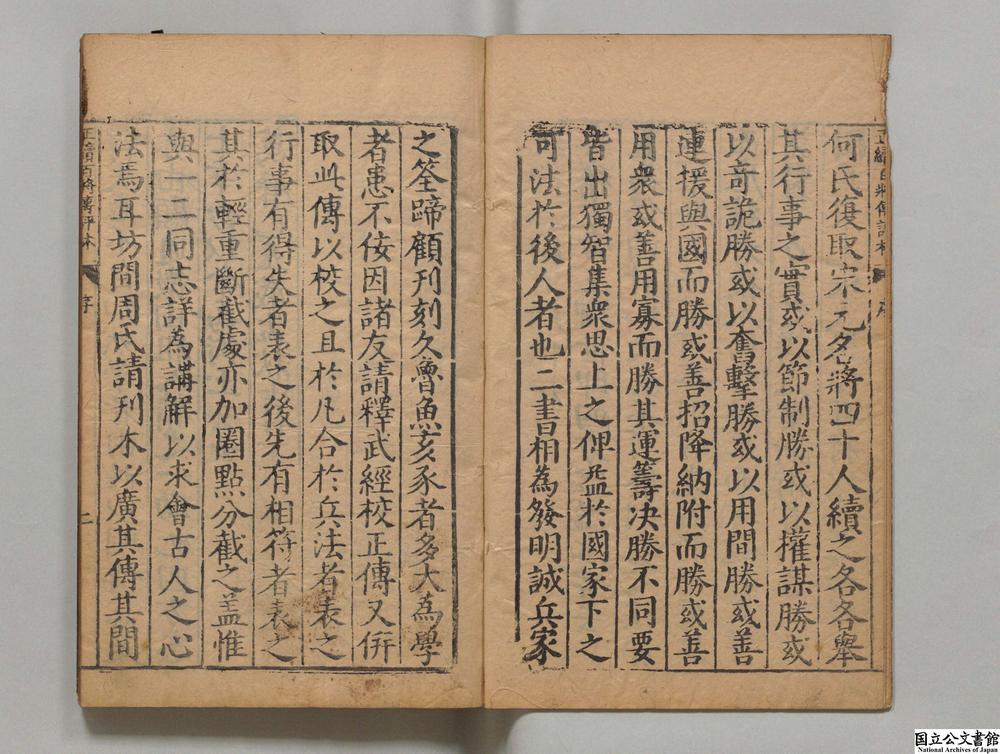 何氏復取宋元名將四十人續之各各舉
其行事之實或以節制勝或以權謀勝或
以奇詭勝或以奮擊勝或以用間勝或善
連援與國而勝或善招降納附而勝或善
用衆或善用寡而勝其運籌决勝不同要
皆出獨智集衆思上之俾益於國家下之
可法於後人者也二書相為發明誠兵家
之筌蹄顧刊刻久魯魚亥豕者多大為學
者患不佞因諸友請釋武經校正傳又倂
取此傳以校之且於凡合於兵法者表之
行事有得失者表之後先有相符者表之
其於輕重斷截處亦加圈點分截之盖惟
與一二同志詳為講解以求會古人之心
法焉耳坊間周氏請刊木以廣其傳其間
正續百將傳評林
序
二
国立公文書館
National Archives of Japan